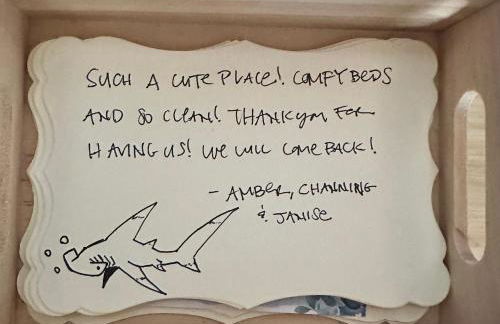 SUCH A CUTE PLACE! COMFY BEDS
AND SO CLEAN! THANK YOU FOR
HAVING US! WE WILL COME BACK!
- AMBER, CHANNING
& JANISE